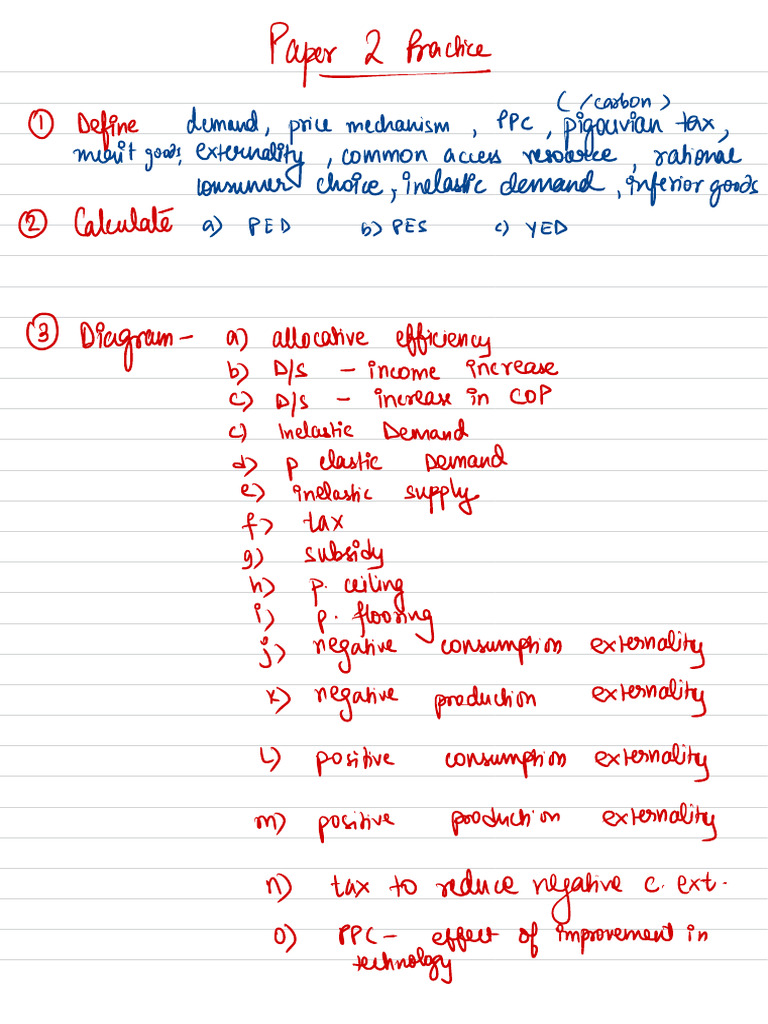 Paper 2 Practice
(/carbon)
① Define demand, price mechanism, PPC, pigouvian tax,
merit goods, externality, common access resource, rational
consumer choice, inelastic demand, inferior goods
② Calculate a) PED b) PES c) YED
③ Diagram- a) allocative efficiency
b) D/S - income increase
c) D/S - increase in COP
c) Inelastic Demand
d) P elastic Demand
e) inelastic supply
f) tax
g) subsidy
h) p. ceiling
i) p. flooring
j) negative consumption externality
k) negative production externality
L) positive consumption externality
m) positive production externality
n) tax to reduce negative c. ext.
o) PPC- effect of improvement in
technology